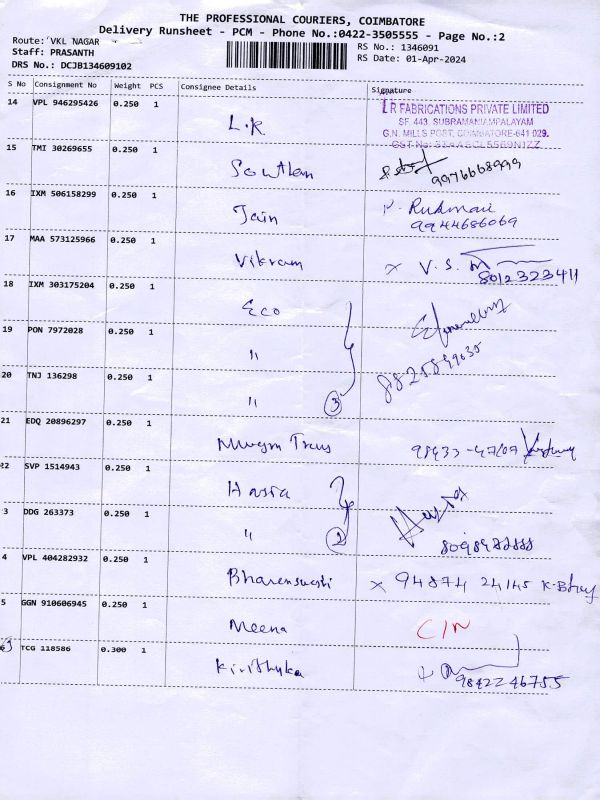 THE PROFESSIONAL COURIERS, COIMBATORE
Delivery Runsheet - PCM - Phone No.:0422-3505555 - Page No.:2
Route: VKL NAGAR
Staff: PRASANTH
DRS No.: DCJB134609102
RS No.: 1346091
RS Date: 01-Apr-2024
S No Consignment No Weight PCS Consignee Details Signature
14 VPL 946295426 0.250 1 L.R
L R FABRICATIONS PRIVATE LIMITED
SF. 443, SUBRAMANIAMPALAYAM
G.N. MILLS POST, COIMBATORE-641 029.
GST No:
15 TMI 30269655 0.250 1 Southern
16 IXM 506158299 0.250 1 Jain
9944686069
17 MAA 573125966 0.250 1 Vikram x V.S.
8012323411
18 IXM 303175204 0.250 1 Eco
19 PON 7972028 0.250 1 "
20 TNJ 136298 0.250 1 " 3
21 EDQ 20896297 0.250 1
22 SVP 1514943 0.250 1
3 DDG 263373 0.250 1 " 2
4 VPL 404282932 0.250 1 x 94874 24145
5 GGN 910606945 0.250 1 Meena
TCG 118586 0.300 1 Kirithyka
9842246755